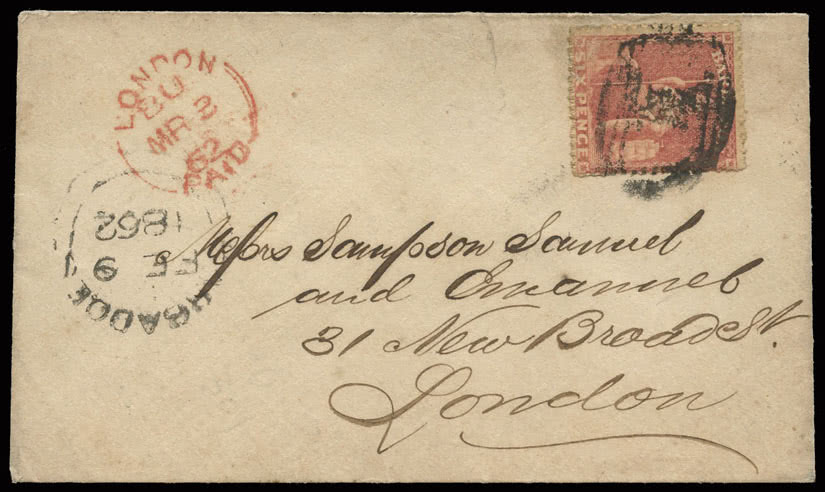 LONDON
MR
62
PAID
SIX PENCE
1862
FE 9
Messrs Sampson Samuel
and Emanuel
31 New Broad St.
London